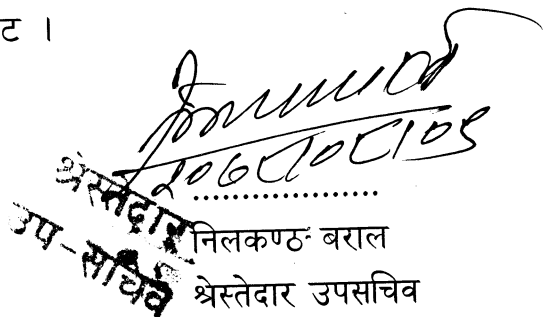 ट ।
२०७८।०८।०९
श्रेस्तेदार
उप-सचिव
..................
निलकण्ठ बराल
श्रेस्तेदार उपसचिव